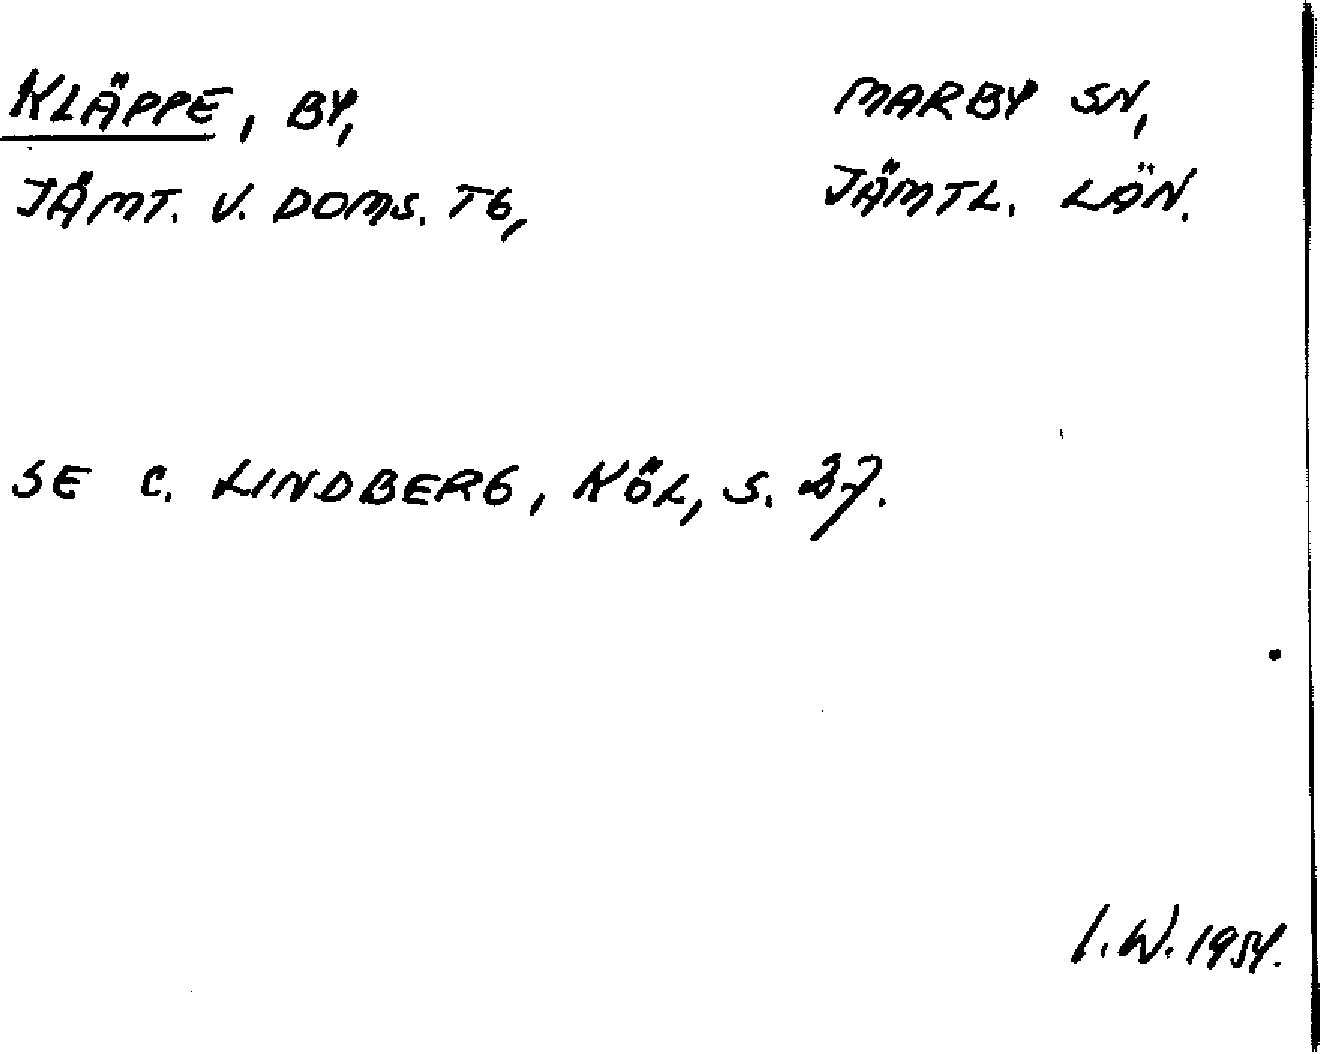 KLÄPPE, BY,
MARBY SN,
JÄMT. V. DOMS. TG,
JÄMTL. LÄN.
SE C. LINDBERG, KÖL, S. 27.
I.W. 1954.